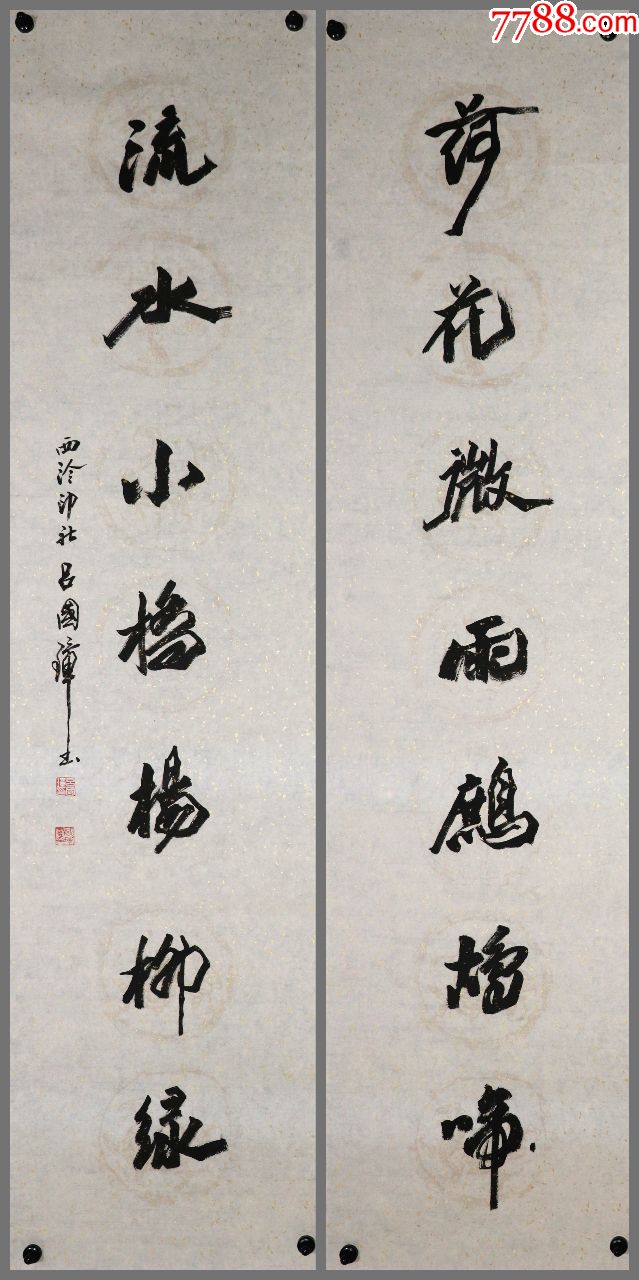 7788.com
荷花微雨鷓鴣啼
流水小橋楊柳綠
西泠印社呂國璋书